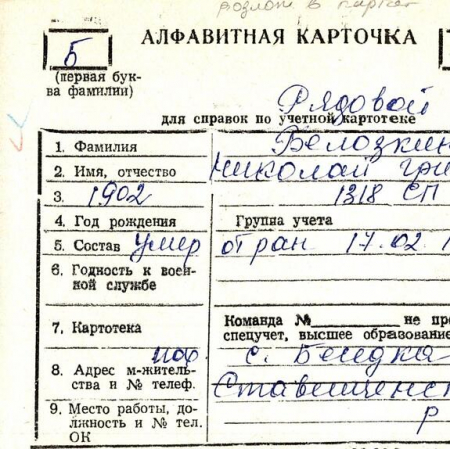 Б
АЛФАВИТНАЯ КАРТОЧКА
(первая бук-
ва фамилии)
Рядовой
для справок по учетной картотеке
1. Фамилия Белозкин
2. Имя, отчество Николай Гри
3. 1902 1318 СП
4. Год рождения Группа учета
5. Состав умер от ран 17.02.1
6. Годность к воен-
ной службе
7. Картотека Команда № не пр
спецучет, высшее образование
с. Беседка
8. Адрес м-житель-
ства и № телеф. Ставищенск
9. Место работы, до-
лжность и № тел.
ОК р